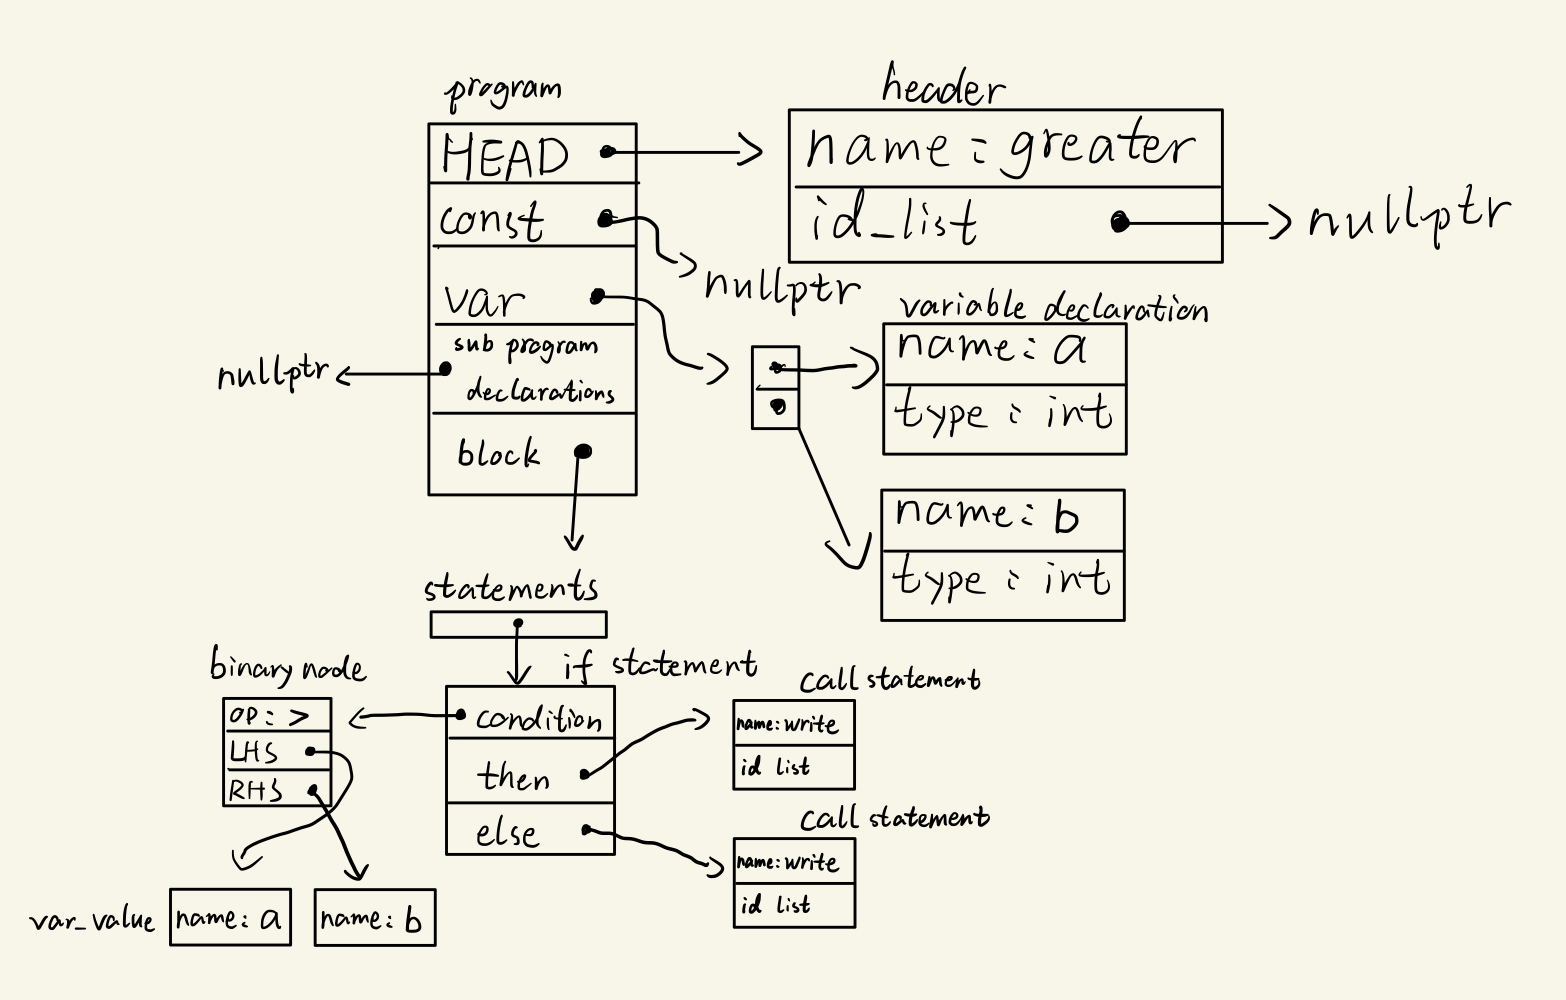 program
HEAD
const
var
sub program
declarations
block
header
name: greater
id_list
nullptr
nullptr
nullptr
variable declaration
name: a
type: int
name: b
type: int
statements
if statement
condition
then
else
binary node
OP: >
LHS
RHS
var_value
name: a
name: b
call statement
name: write
id list
call statement
name: write
id list